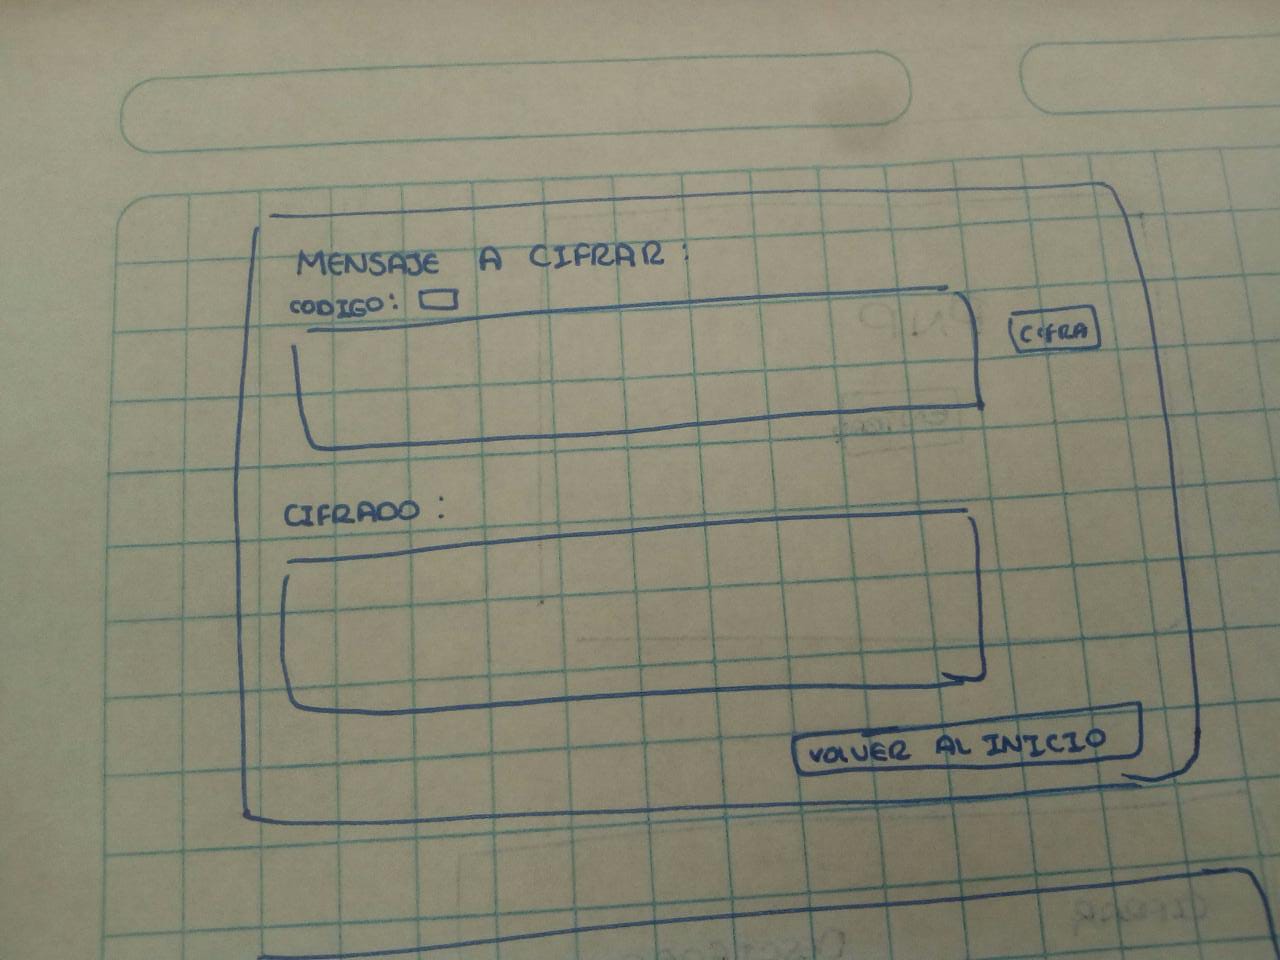 MENSAJE A CIFRAR:
CODIGO:
CIFRA
CIFRADO:
VOLVER AL INICIO